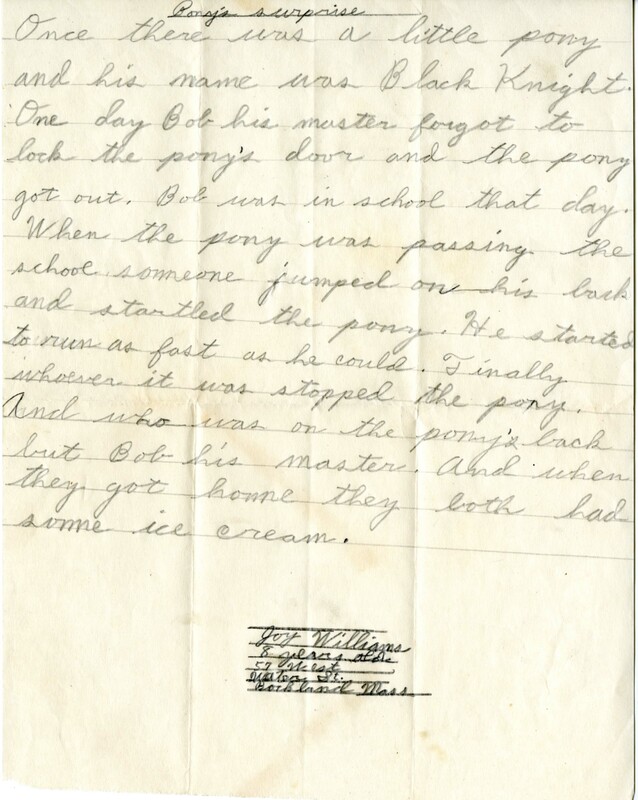 Pony's surprise
Once there was a little pony
and his name was Black Knight.
One day Bob his master forgot to
lock the pony's door and the pony
got out. Bob was in school that day.
When the pony was passing the
school someone jumped on his back
and startled the pony. He started
to run as fast as he could. Finally
whoever it was stopped the pony.
And who was on the pony's back
but Bob his master. And when
they got home they both had
some ice cream.
Joy Williams
8 years old
57 West
Water St.
Rockland Mass